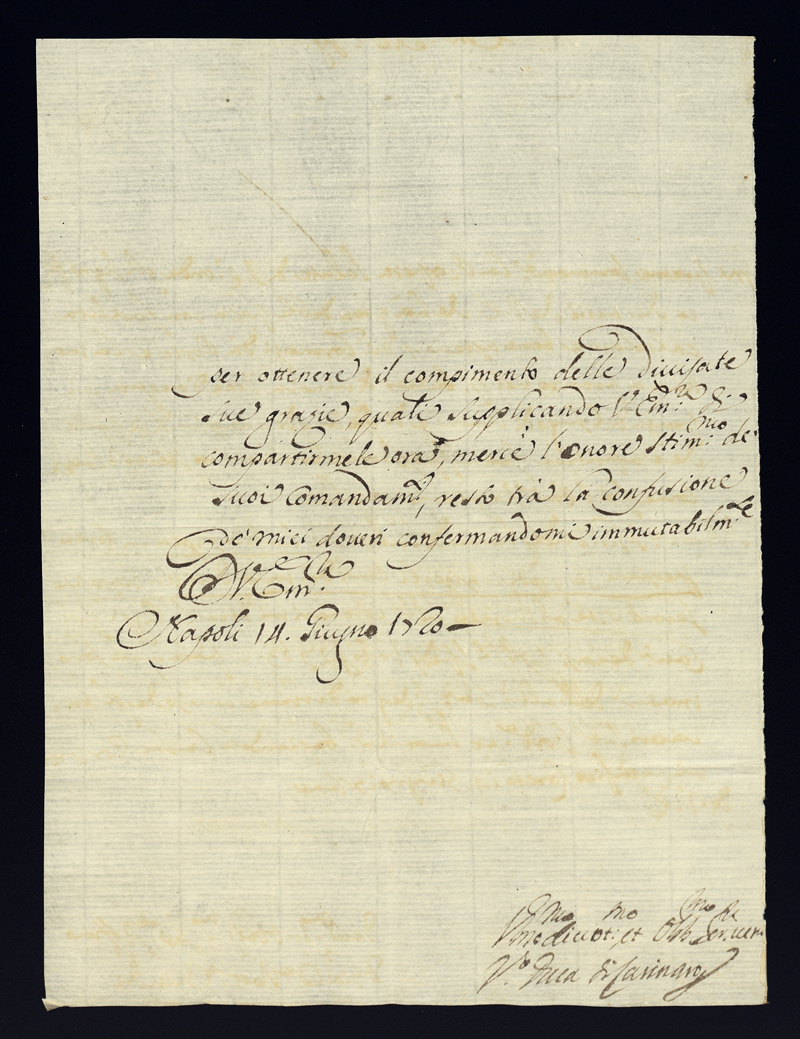 per ottenere il compimento delle divisate
sue grazie, quali supplicando V. Em.za di
compartirmele ora, mercè l'onore stim.mo de'
suoi Comandam.ti, resto trà la confusione
de' miei doveri confermandomi immutabilm.te
D. V. Em.za
Napoli 14. Giugno 1720
divot.mo et Obb.mo Ser.re
Duca di Casinaro